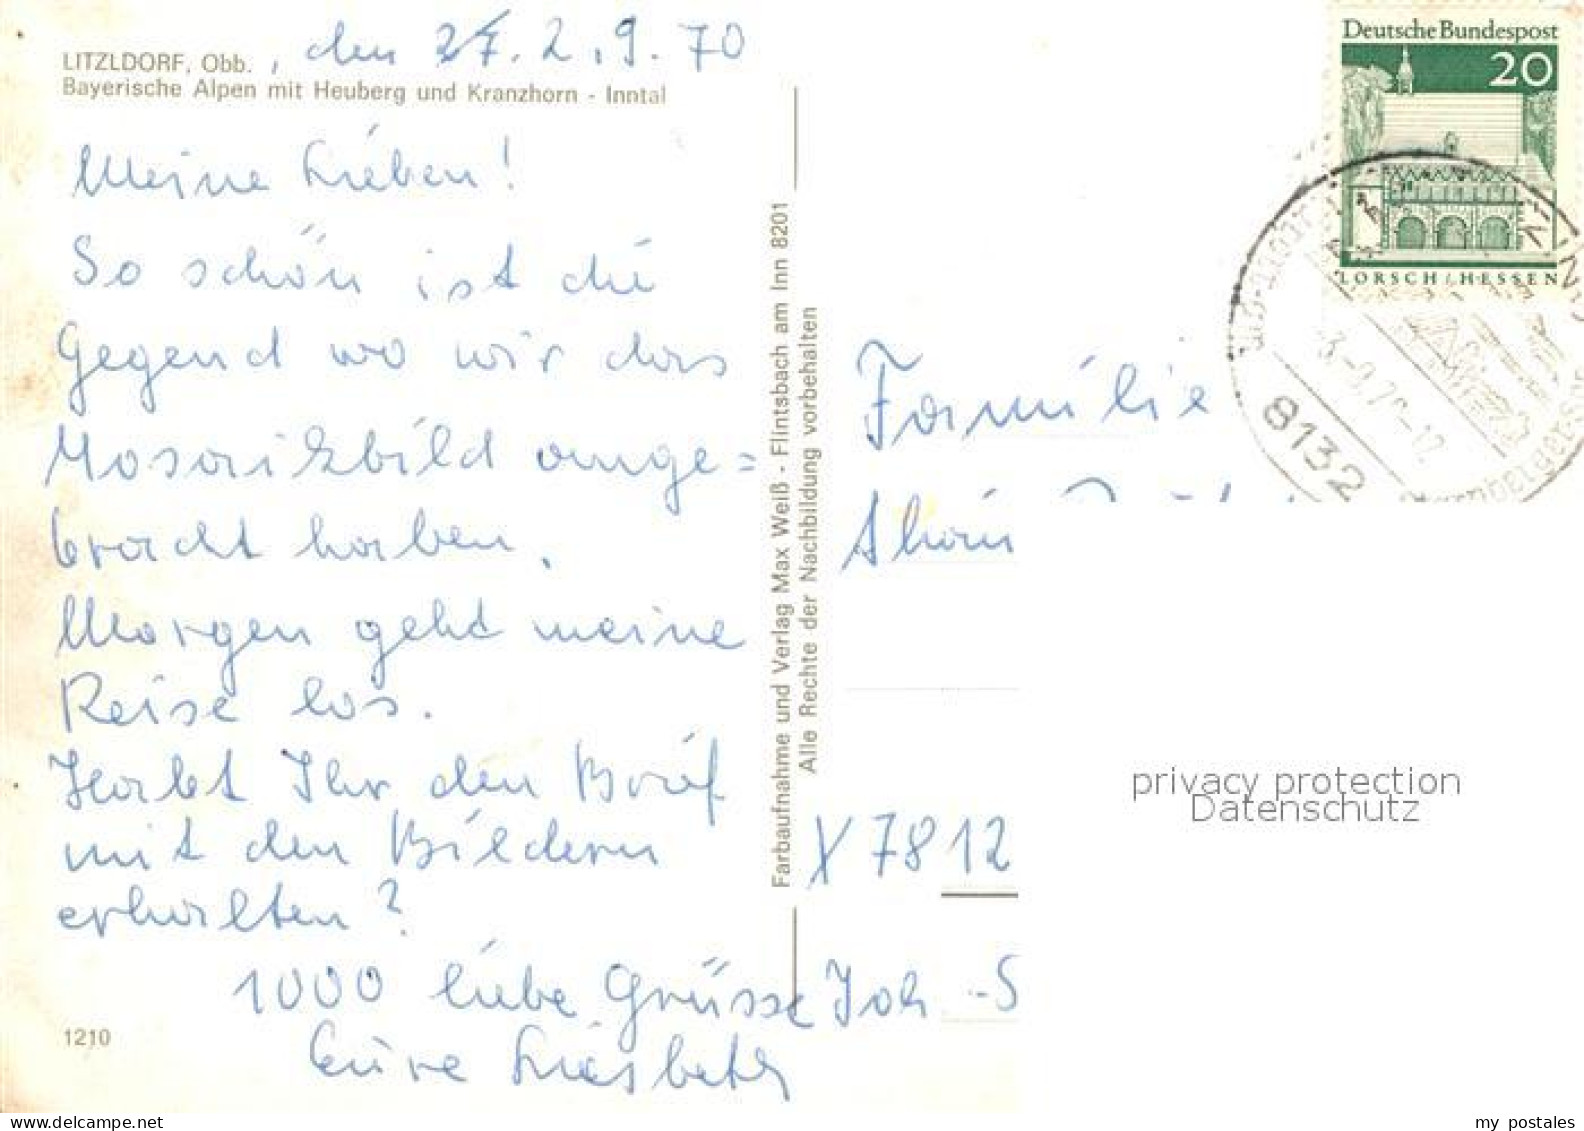 LITZLDORF, Obb., den 2.9.70
Bayerische Alpen mit Heuberg und Kranzhorn - Inntal
Meine Lieben!
So schön ist die
Gegend wo wir das
Mosaikbild ange=
bracht haben.
Morgen geht meine
Reise los.
Habt Ihr den Brief
mit den Bildern
erhalten?
1000 liebe Grüsse
Eure Liesbeth
1210
Farbaufnahme und Verlag Max Weiß - Flintsbach am Inn 8201
Alle Rechte der Nachbildung vorbehalten
Deutsche Bundespost
20
LORSCH/HESSEN
8132
Familie
X 7812
Joh
privacy protection
Datenschutz
my postales